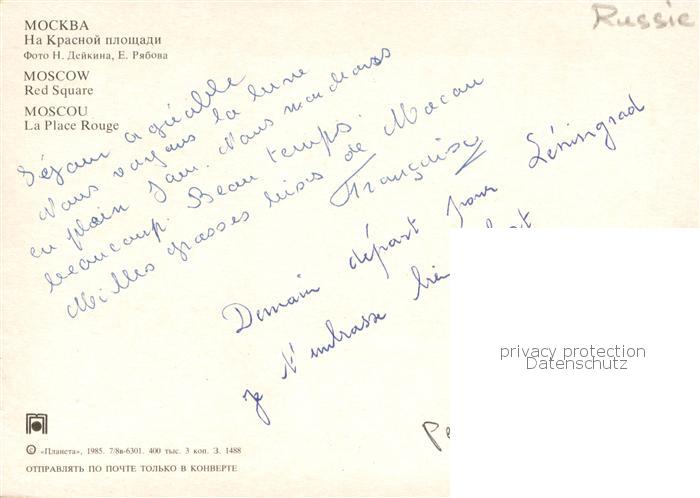 Russie
МОСКВА
На Красной площади
Фото Н. Дейкина, Е. Рябова
MOSCOW
Red Square
MOSCOU
La Place Rouge
Séjour agréable
Nous voyons la lune
en plein jour. Nous marchons
beaucoup. Beau temps.
Milles grosses bises de Macau
Françoise
Demain départ pour Léningrad
je t'embrasse
privacy protection
Datenschutz
© «Планета», 1985. 7/8в-6301. 400 тыс. 3 коп. З. 1488
ОТПРАВЛЯТЬ ПО ПОЧТЕ ТОЛЬКО В КОНВЕРТЕ